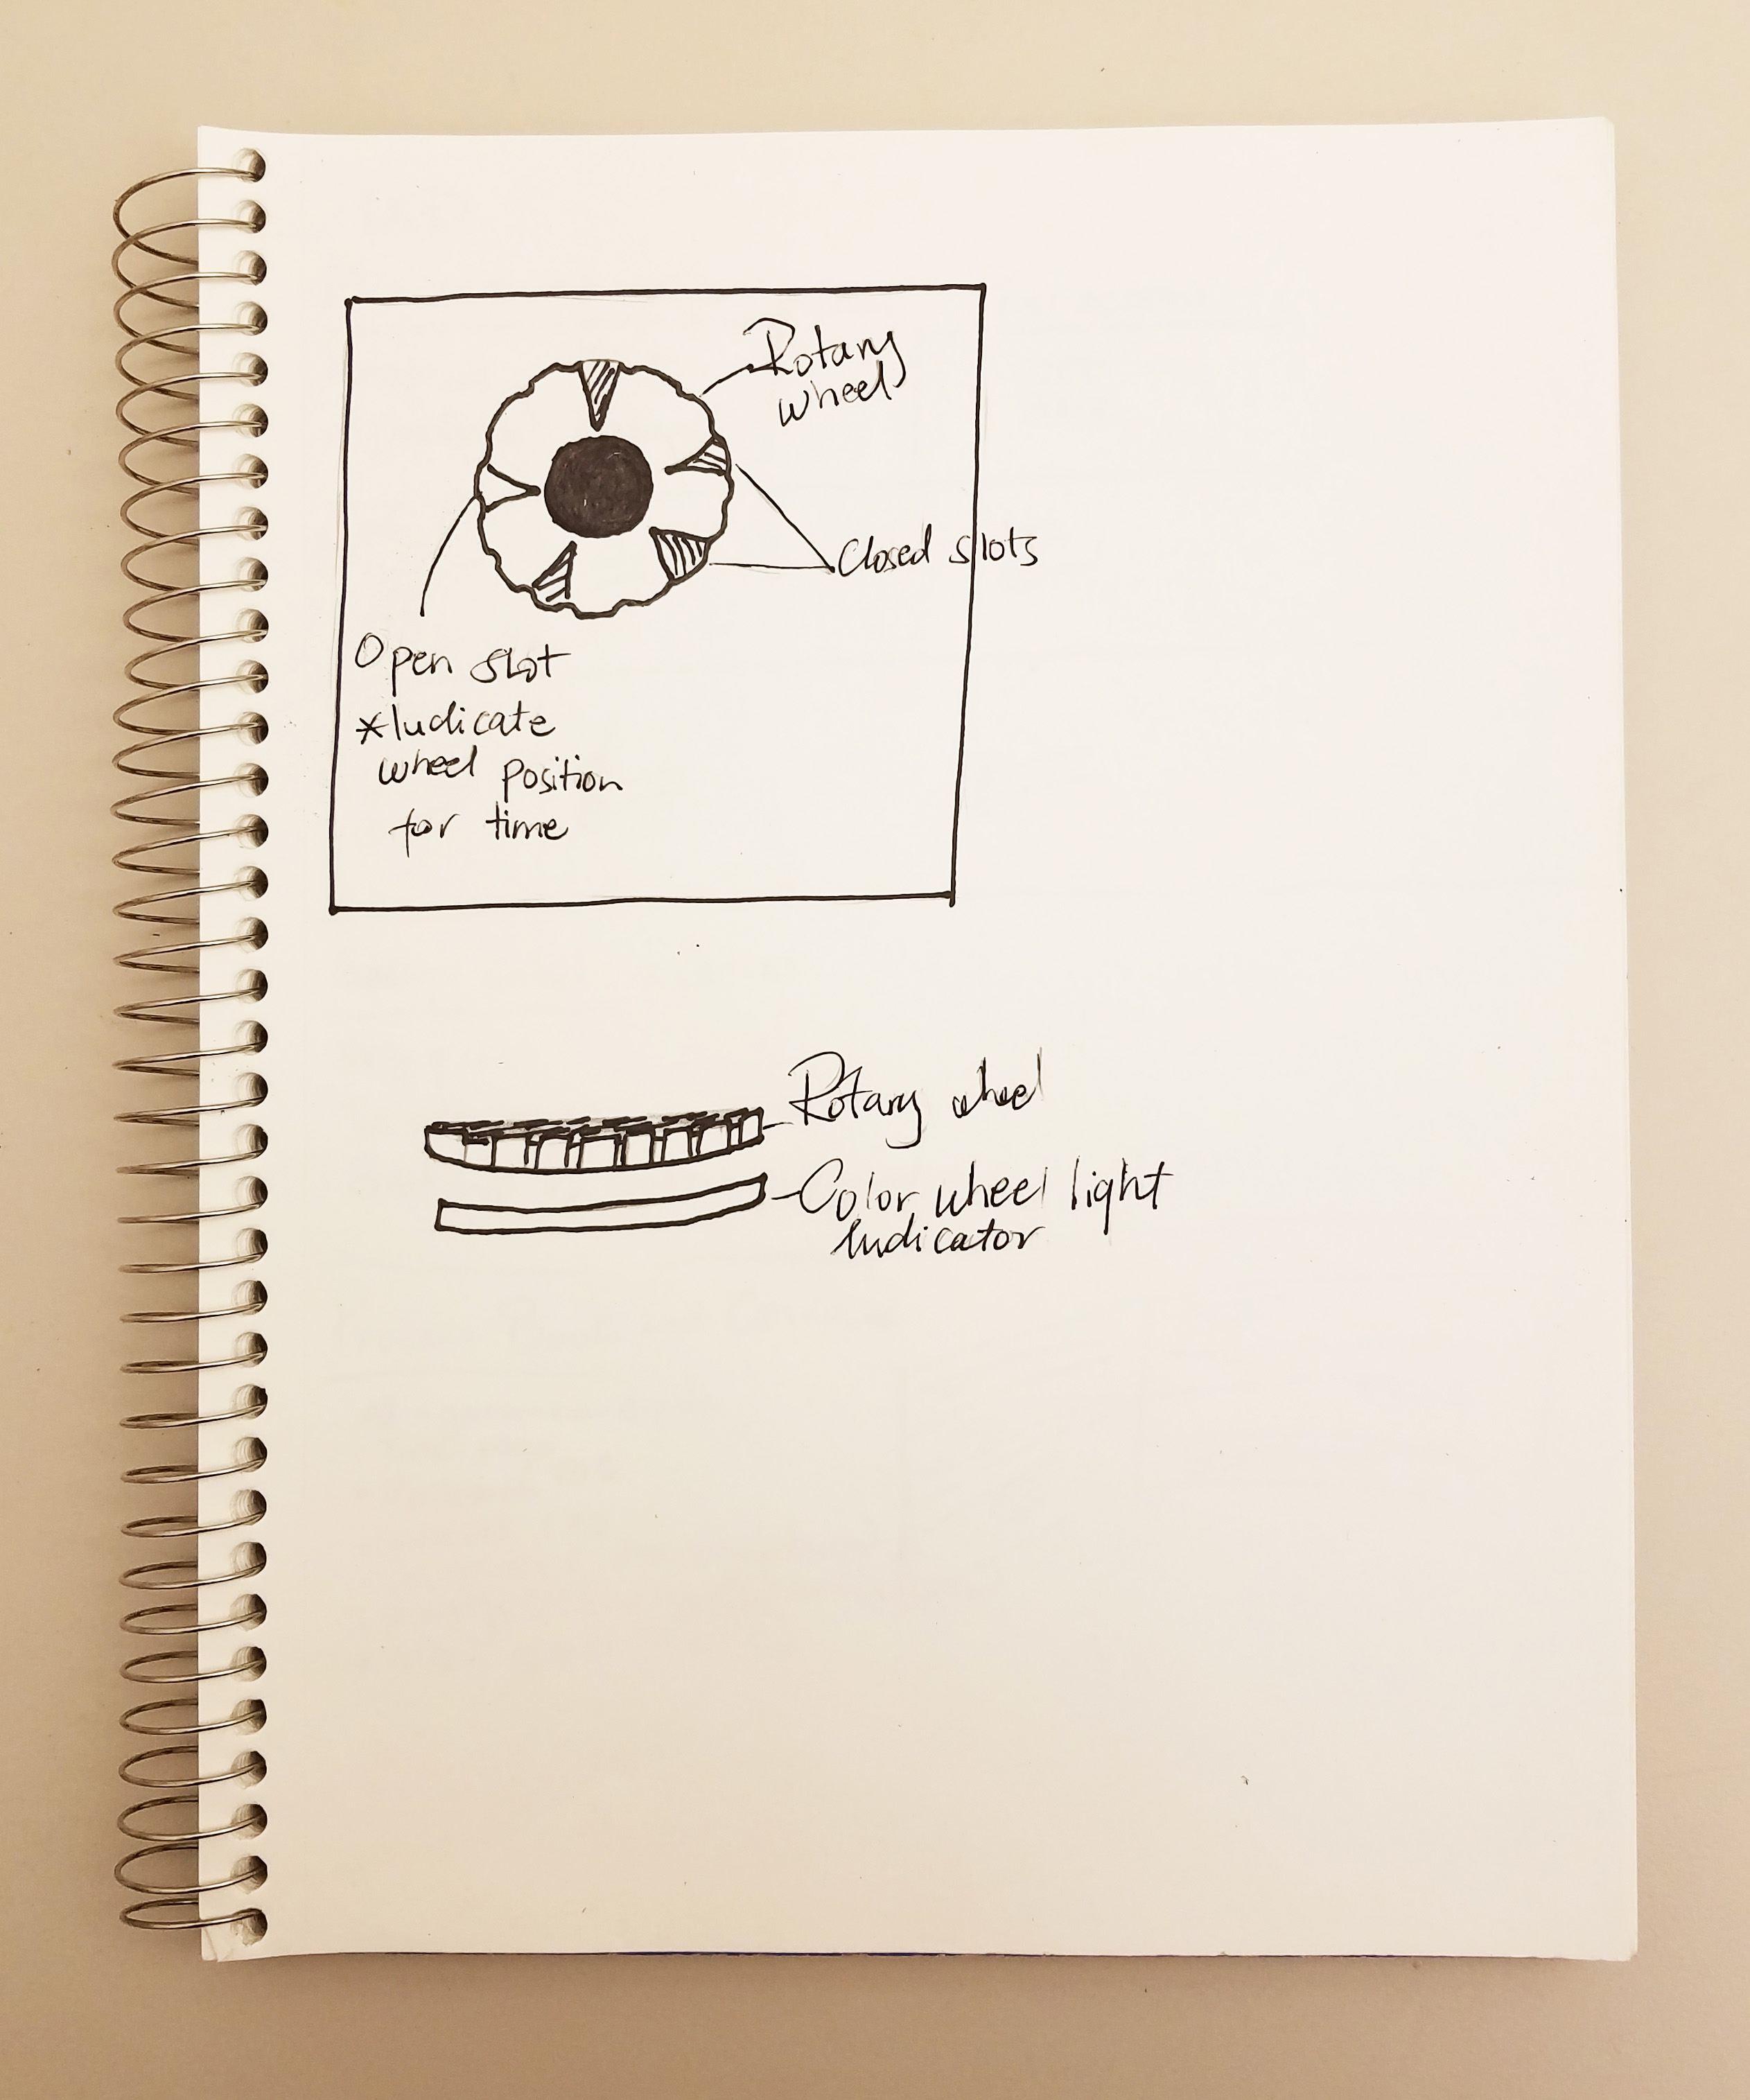 Rotary
wheel
Closed slots
Open slot
*Indicate
wheel position
for time
Rotary wheel
Color wheel light
Indicator